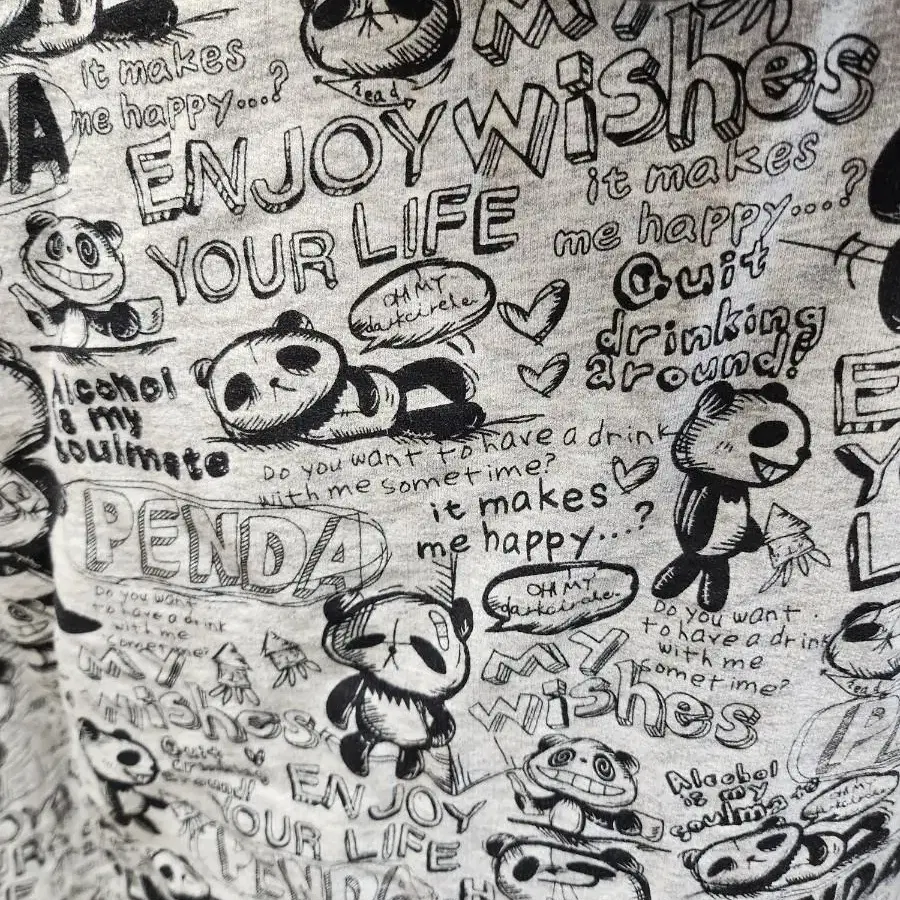 it makes
me happy...?
A
MY
Wishes
Lead
ENJOY
YOUR LIFE
it makes
me happy...?
Quit
drinking
around!
OH MY
darkcircle.
Alcohol
is my
soulmate
Do you want to have a drink
with me sometime?
it makes
me happy...?
PENDA
OH MY
darkcircle.
Do you want
to have a drink
with me
sometime?
Do you want
to have a drink
with me
sometime?
MY
wishes
MY
wishes
Quit
ENJOY
YOUR LIFE
Alcohol
is my
soulmate
OH MY
darkcircle.
PENDA